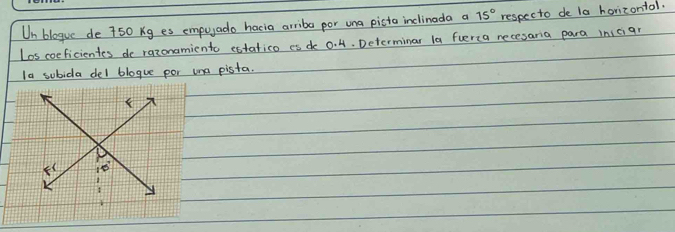 Un bloque de 750 Kg es empujado hacia arriba por una pista inclinada a 15° respecto de la horizontal.
Los coeficientes de razonamiento estatico es de 0.4. Determinar la fuerza necesaria para iniciar
la subida del bloque por una pista.
F
Fr